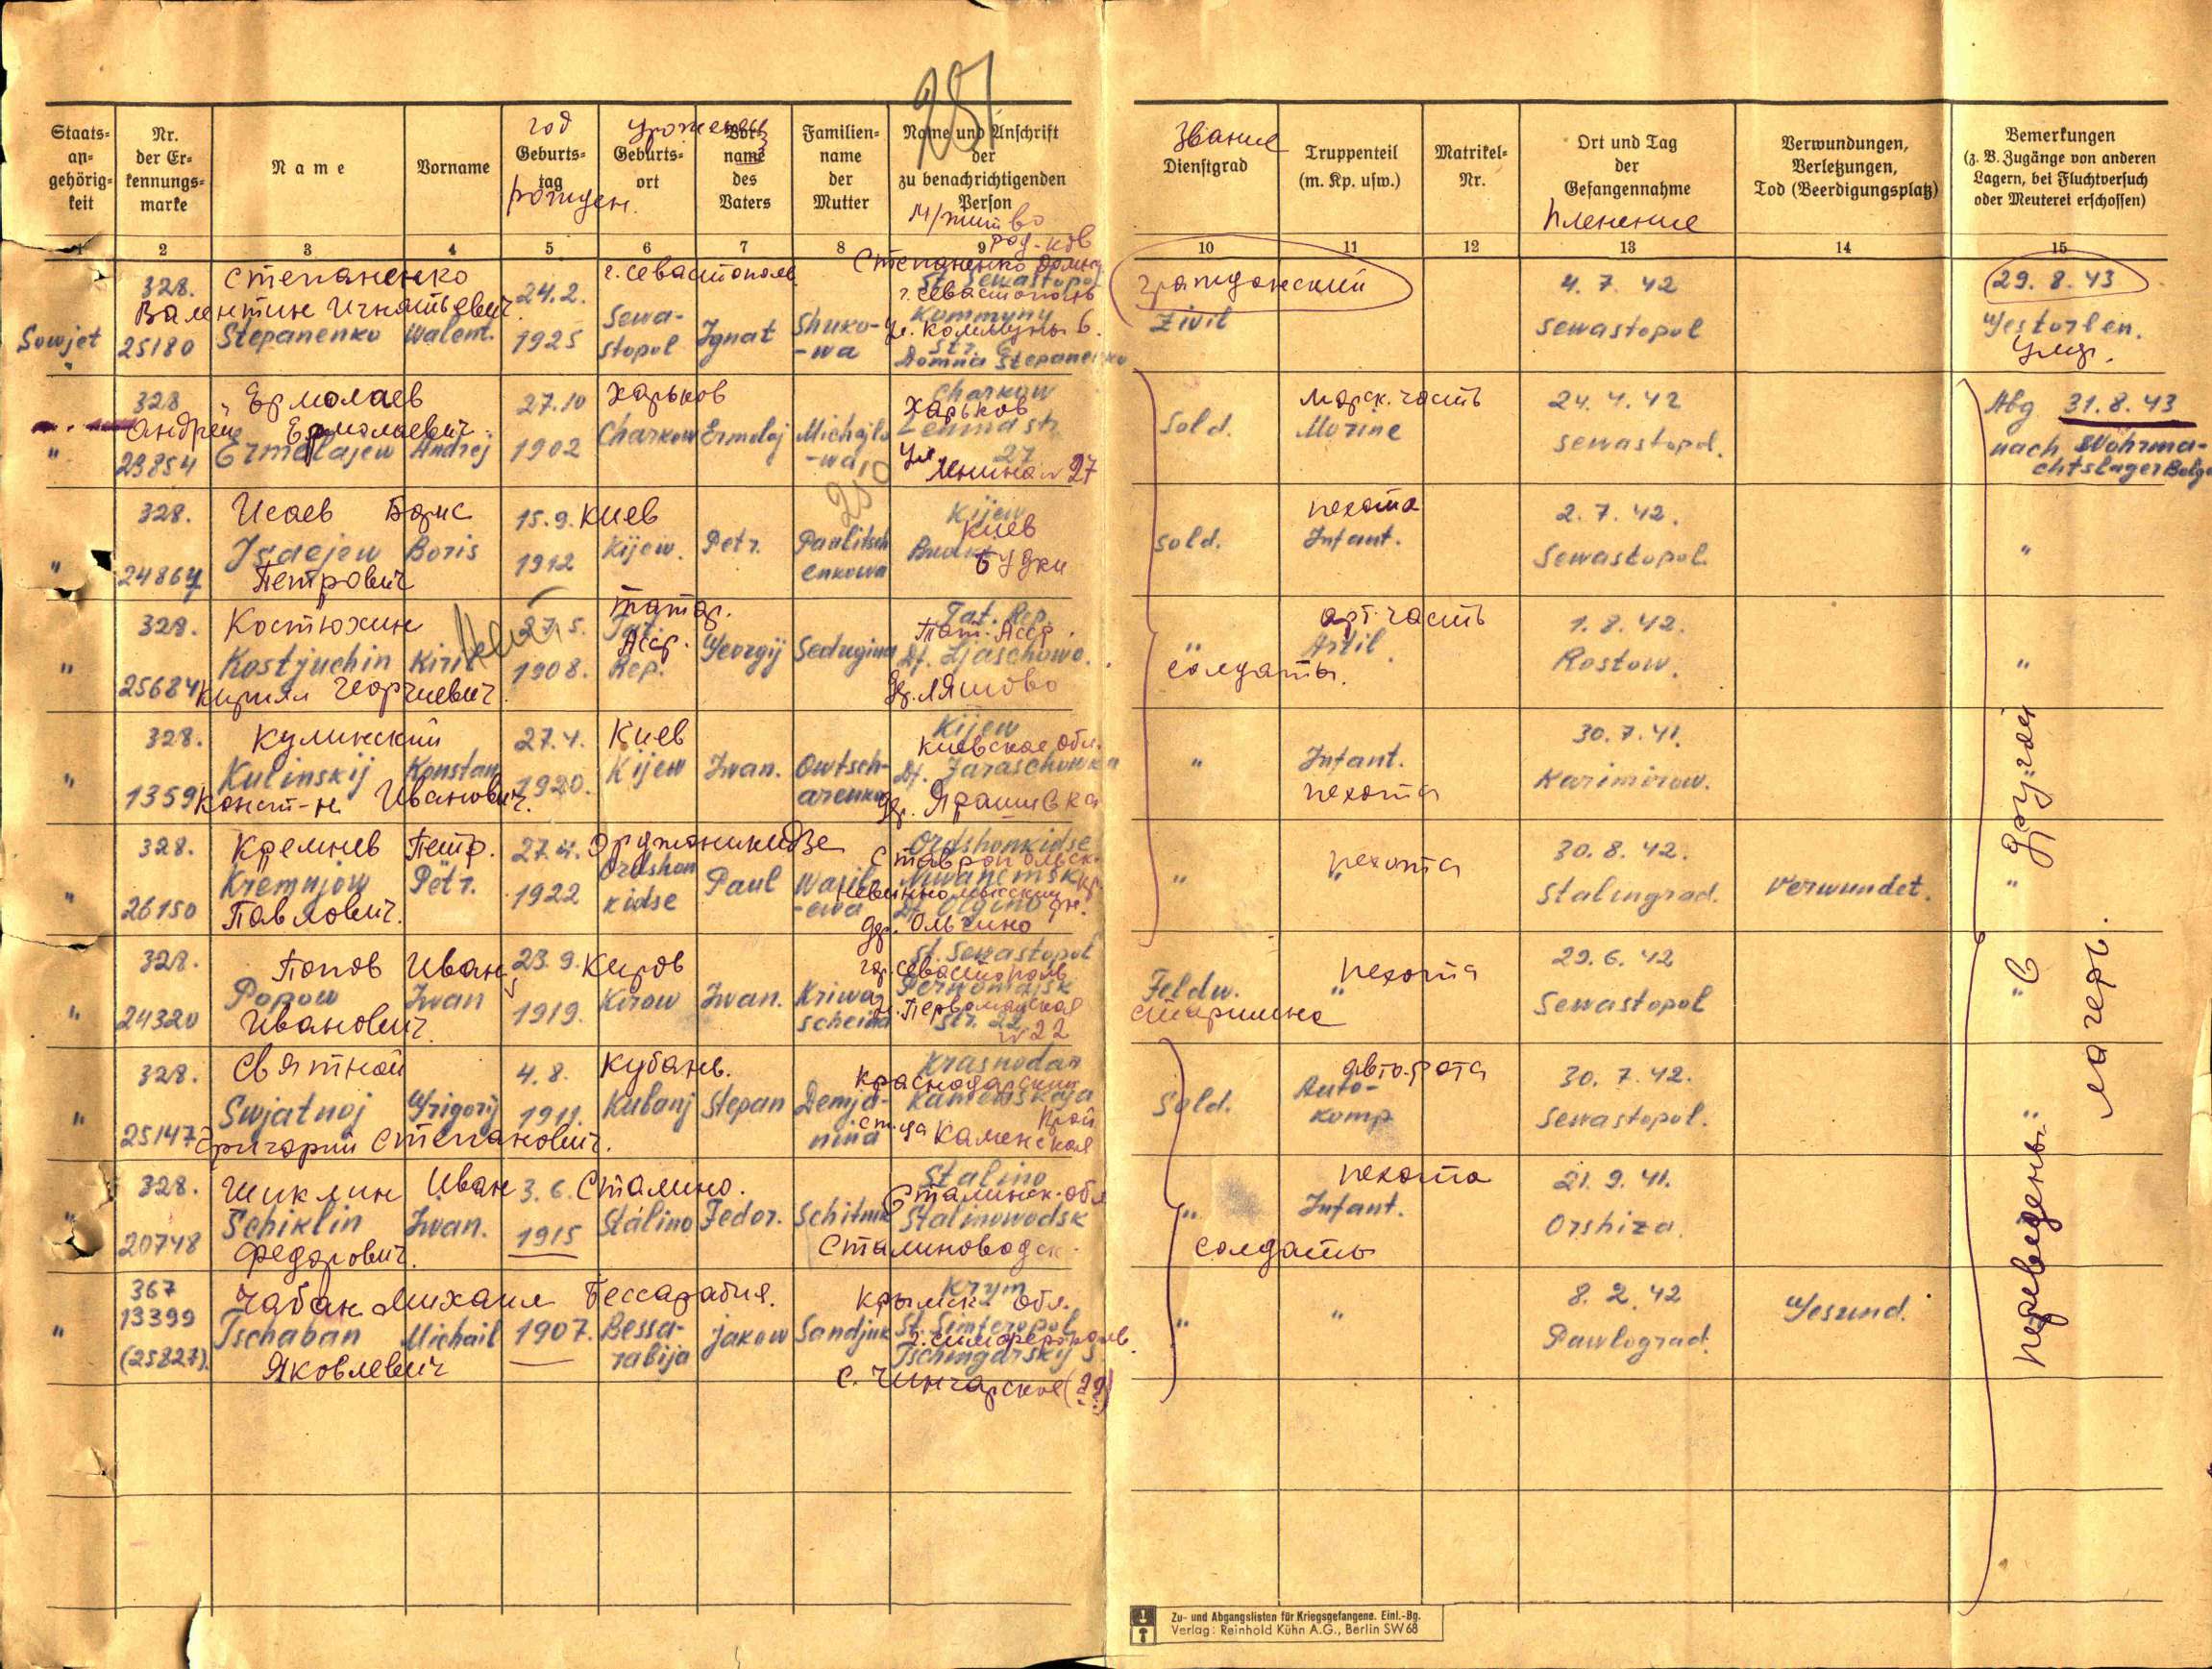 251
Staats-
an-
gehörig-
keit
Nr.
der Er-
kennungs-
marke
Name
Vorname
год
Geburts-
tag
рожден.
уроженец
Geburts-
ort
Vor-
name
des
Vaters
Familien-
name
der
Mutter
Name und Anschrift
der
zu benachrichtigenden
Person
М/жит во
род-ков
Звание
Dienstgrad
Truppenteil
(m. Kp. usw.)
Matrikel-
Nr.
Ort und Tag
der
Gefangennahme
Пленение
Verwundungen,
Verletzungen,
Tod (Beerdigungsplatz)
Bemerkungen
(z. B. Zugänge von anderen
Lagern, bei Fluchtversuch
oder Meuterei erschossen)
1 2 3 4 5 6 7 8 9 10 11 12 13 14 15
Sowjet
328.
25180
Степаненко
Валентин Игнатьевич.
Stepanenko Walent.
24.2.
1925
г. Севастополь
Sewa-
stopol
Ignat
Shuko-
-wa
Степаненко Домна
St. Sewastopol
г. Севастополь
Kommyny
ул. Коммуны 6.
Str. 6
Domna Stepanenko
гражданский
Zivil
4. 7. 42
Sewastopol
29. 8. 43
Gestorben.
Умер.
"
328
23854
Ермолаев
Андрей Ермолаевич.
Ermolajew Andrej
27.10
1902
Харьков
Charkow
Ermolaj
Michajlo
-wa
Charkow
Харьков
Lenina str
27
ул. Ленина № 27
Sold.
Морск. часть
Marine
24. 4. 42
Sewastopol.
Abg 31.8.43
nach Wehrma-
chtslager
"
328.
24864
Исаев Борис
Isaejew Boris
Петрович
15.9.
1912
Киев
Kijew.
Petr.
Paulitsch
enkowa
250
Kijew
Киев
Будки
Sold.
пехота
Infant.
2. 7. 42.
Sewastopol.
"
"
328.
25684
Костюхин
Kostjuchin Kiril
Кирилл Георгиевич.
27.5.
1908.
татар.
Tat.
Асср.
Rep.
Georgij
Sedugina
Tat. Rep.
Тат. Асср.
Df. Ljaschowo.
Др. Ляшово
"
солдаты.
арт. часть
Artil.
1. 8. 42.
Rostow.
"
"
328.
1359
Кулинский
Kulinskij Konstan
Конст-н Иванович.
27.4.
1920.
Киев
Kijew
Iwan.
Owtsch-
arenko
Kijew
Киевская обл.
Df. Jaraschowka
др. Ярашивка
"
Infant.
пехота
30. 7. 41.
"
328.
26150
Кремнев Петр.
Kremnjow Petr.
Павлович.
27.4.
1922
Орджоникидзе
Ordshon
kidse
Paul
Wasil
-ewa
Ordshonkidse
Ставропольск. кр.
Невинномысский рн.
Df. Olgino
др. Ольгино
"
пехота
"
30. 8. 42.
Stalingrad.
Verwundet.
"
"
328.
24320
Попов Иван
Popow Iwan
Иванович.
23.9.
1919.
Киров
Kirow
Iwan.
Kriwa
scheina
St. Sewastopol
гор. Севастополь
Perwomajsk
ул. Первомайская
Str. 22
№ 22
Feldw.
старшина
пехота
"
29. 6. 42
Sewastopol
"
"
328.
25147
Святной
Swjatnoj Grigorij
Григорий Степанович.
4.8.
1911.
Кубань.
Kubanj
Stepan
Demja-
nina
Krasnodar
Краснодарский край
Kamenskaja
ст-ца Каменская
Sold.
авто-рота
Auto-
komp
30. 7. 42.
Sewastopol.
"
"
328.
20748
Шиклин Иван
Schiklin Iwan.
Федорович.
3.6.
1915
Сталино.
Stalino
Fedor.
Schitnik
Stalino
Сталинск. обл
Stalinowodsk
Сталиноводск.
"
солдаты
пехота
Infant.
21. 9. 41.
Orshiza.
"
367
13399
(25827).
Чабан Михаил
Tschaban Michail
Яковлевич
1907.
Бессарабия.
Bessa-
rabija
Jakow
Sandjuk
Krym
Крымск. обл.
St. Simferopol
г. Симферополь.
Tschingarskij S
с. Чингарское (??)
"
"
8. 2. 42
Pawlograd.
Gesund.
переведены в другой
лагерь.
Zu- und Abgangslisten für Kriegsgefangene. Einl.-Bg.
Verlag: Reinhold Kühn A.G., Berlin SW 68